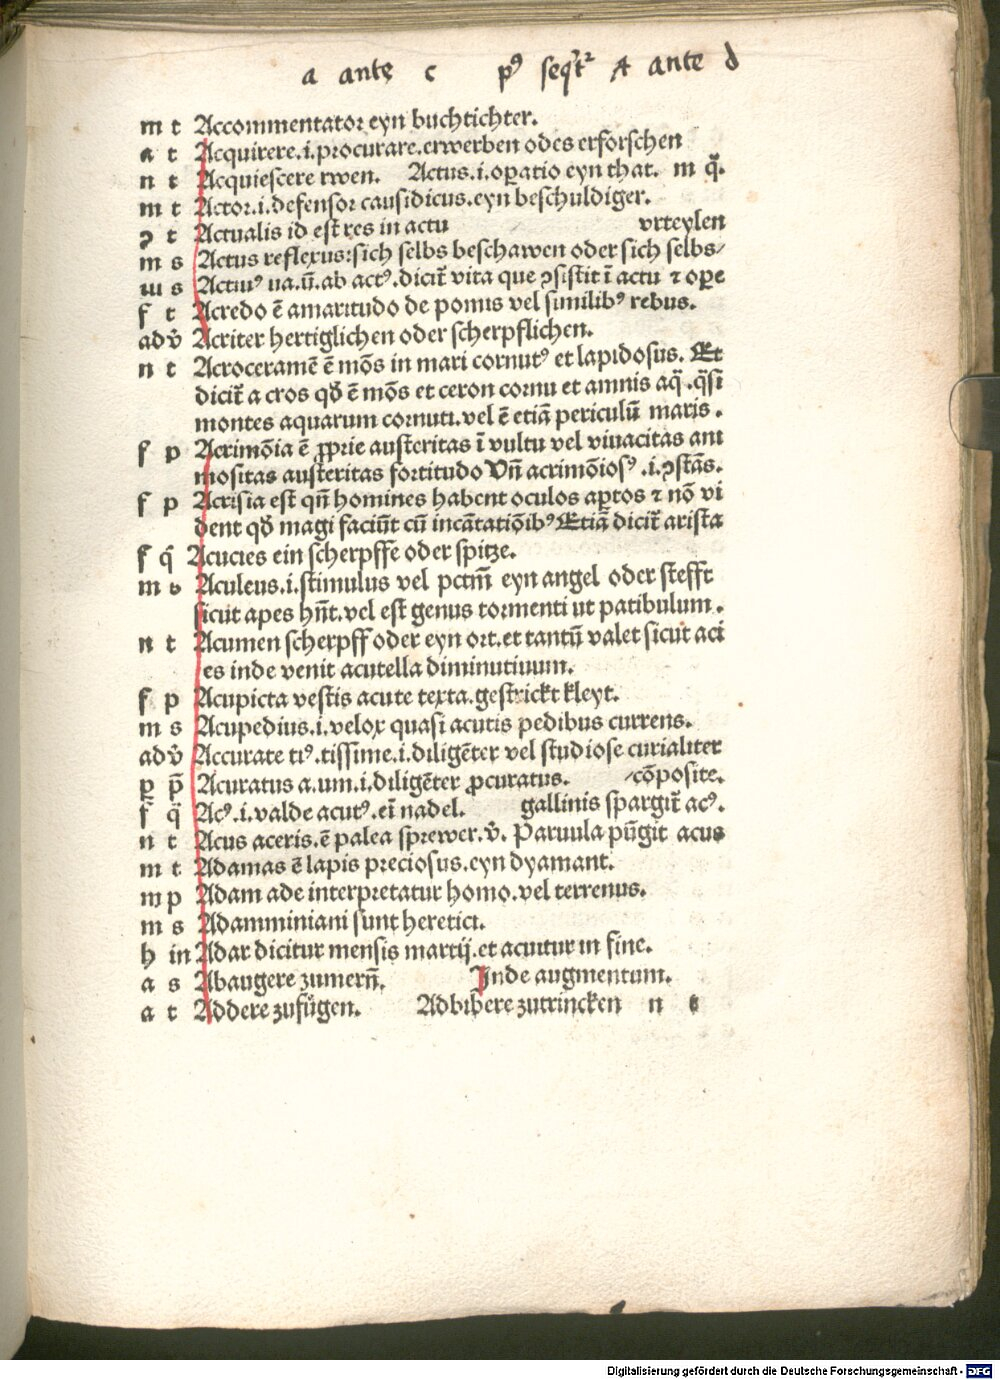 a ante c pꝰ seqt̄ᷣ A ante d
m t Accommentator eyn buchtichter.
a t Acquirere.i.procurare.erwerben odes erforschen
n t Acquiescere rwen. Actus.i.oꝑatio eyn that. m q̈.
m t Actor.i.defensor causidicus.eyn beschuldiger.
ꝯ t Actualis id est res in actu vrteylen
m s Actus reflexus:sich selbs beschawen oder sich selbs/
m s Actiuꝰ ua.ū.ab actꝰ.dicit̄ vita que ꝯsistit ī actu ⁊ oꝑe
f t Acredo ē amaritudo de pomis vel similibꝰ rebus.
adv̄ Acriter hertiglichen oder scherpflichen.
n t Acroceramē ē mōs in mari cornutꝰ et lapidosus. Et
dicit̄ a cros qď ē mōs et ceron cornu et amnis aq̄ .q̄si
montes aquarum cornuti.vel ē etiā periculū maris .
f p Acrimōia ē ꝓprie austeritas ī vultu vel viuacitas ani
mositas austeritas fortitudo Vn̄ acrimōiosꝰ .i.ꝯstās.
f p Acrisia est qn̄ homines habent oculos aꝑtos ⁊ nō vi
dent qď magi faciūt cū incātatiōibꝰ Etiā dicit̄ arista
f q̄ Acucies ein scherpffe oder spitze.
m o Aculeus.i.stimulus vel pctm̄ eyn angel oder stefft
sicut apes hn̄t.vel est genus tormenti ut patibulum.
n t Acumen scherpff oder eyn ort.et tantū valet sicut aci
es inde venit acutella diminutiuum.
f p Acupicta vestis acute texta.gestrickt kleyt.
m s Acupedius.i.velox quasi acutis pedibus currens.
adv̄ Accurate tiꝰ.tissime.i.diligēter vel studiose curialiter
ꝑ p̄ Acuratus a.um.i.diligēter ꝓcuratus. /cōposite.
f q̄ Acꝰ.i.valde acutꝰ.eī nadel. gallinis spargit̄ acꝰ.
n t Acus aceris.ē palea sprewer.v̄. Paruula pūgit acus
m t Adamas ē lapis preciosus.eyn dyamant.
m p Adam ade interpretatur homo.vel terrenus.
m s Adamminiani sunt heretici.
h in Adar dicitur mensis martij.et acuitur in fine.
a s Abaugere zumern̄. Inde augmentum.
a t Addere zufügen. Adbibere zutrincken n t
Digitalisierung gefördert durch die Deutsche Forschungsgemeinschaft - DFG